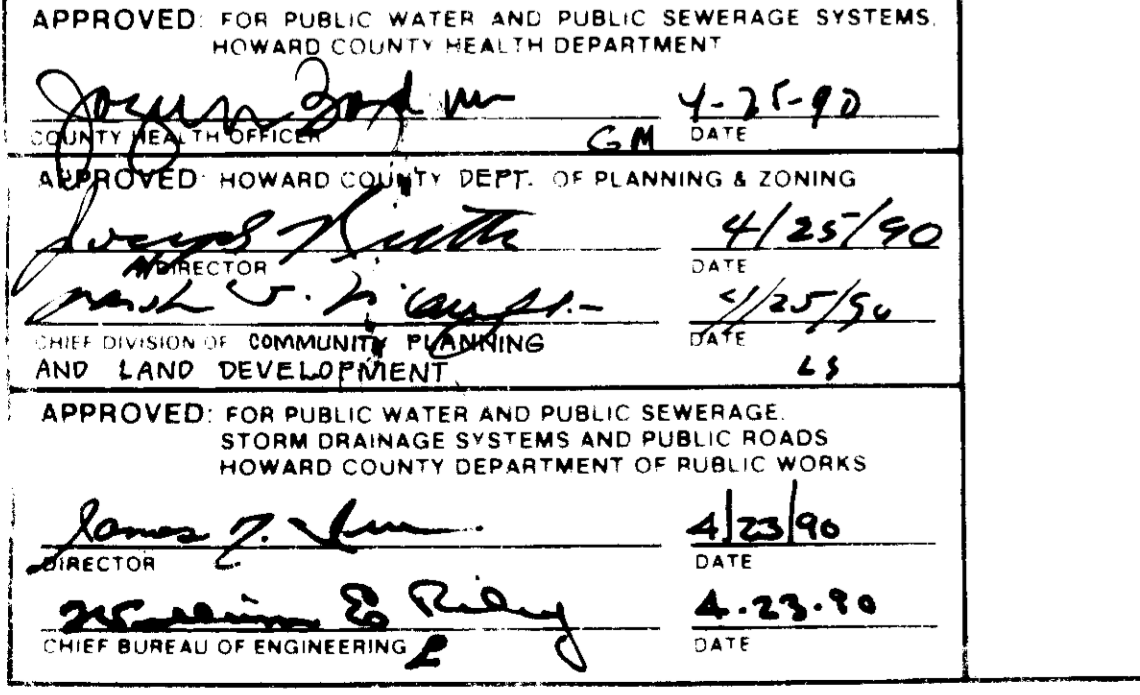 APPROVED: FOR PUBLIC WATER AND PUBLIC SEWERAGE SYSTEMS.
HOWARD COUNTY HEALTH DEPARTMENT
4-25-90
COUNTY HEALTH OFFICER GM DATE
APPROVED: HOWARD COUNTY DEPT. OF PLANNING & ZONING
Joseph 4/25/90
DIRECTOR DATE
4/25/90
CHIEF DIVISION OF COMMUNITY PLANNING DATE
AND LAND DEVELOPMENT LS
APPROVED: FOR PUBLIC WATER AND PUBLIC SEWERAGE.
STORM DRAINAGE SYSTEMS AND PUBLIC ROADS
HOWARD COUNTY DEPARTMENT OF PUBLIC WORKS
James 4/23/90
DIRECTOR DATE
William E Riley 4.23.90
CHIEF BUREAU OF ENGINEERING DATE